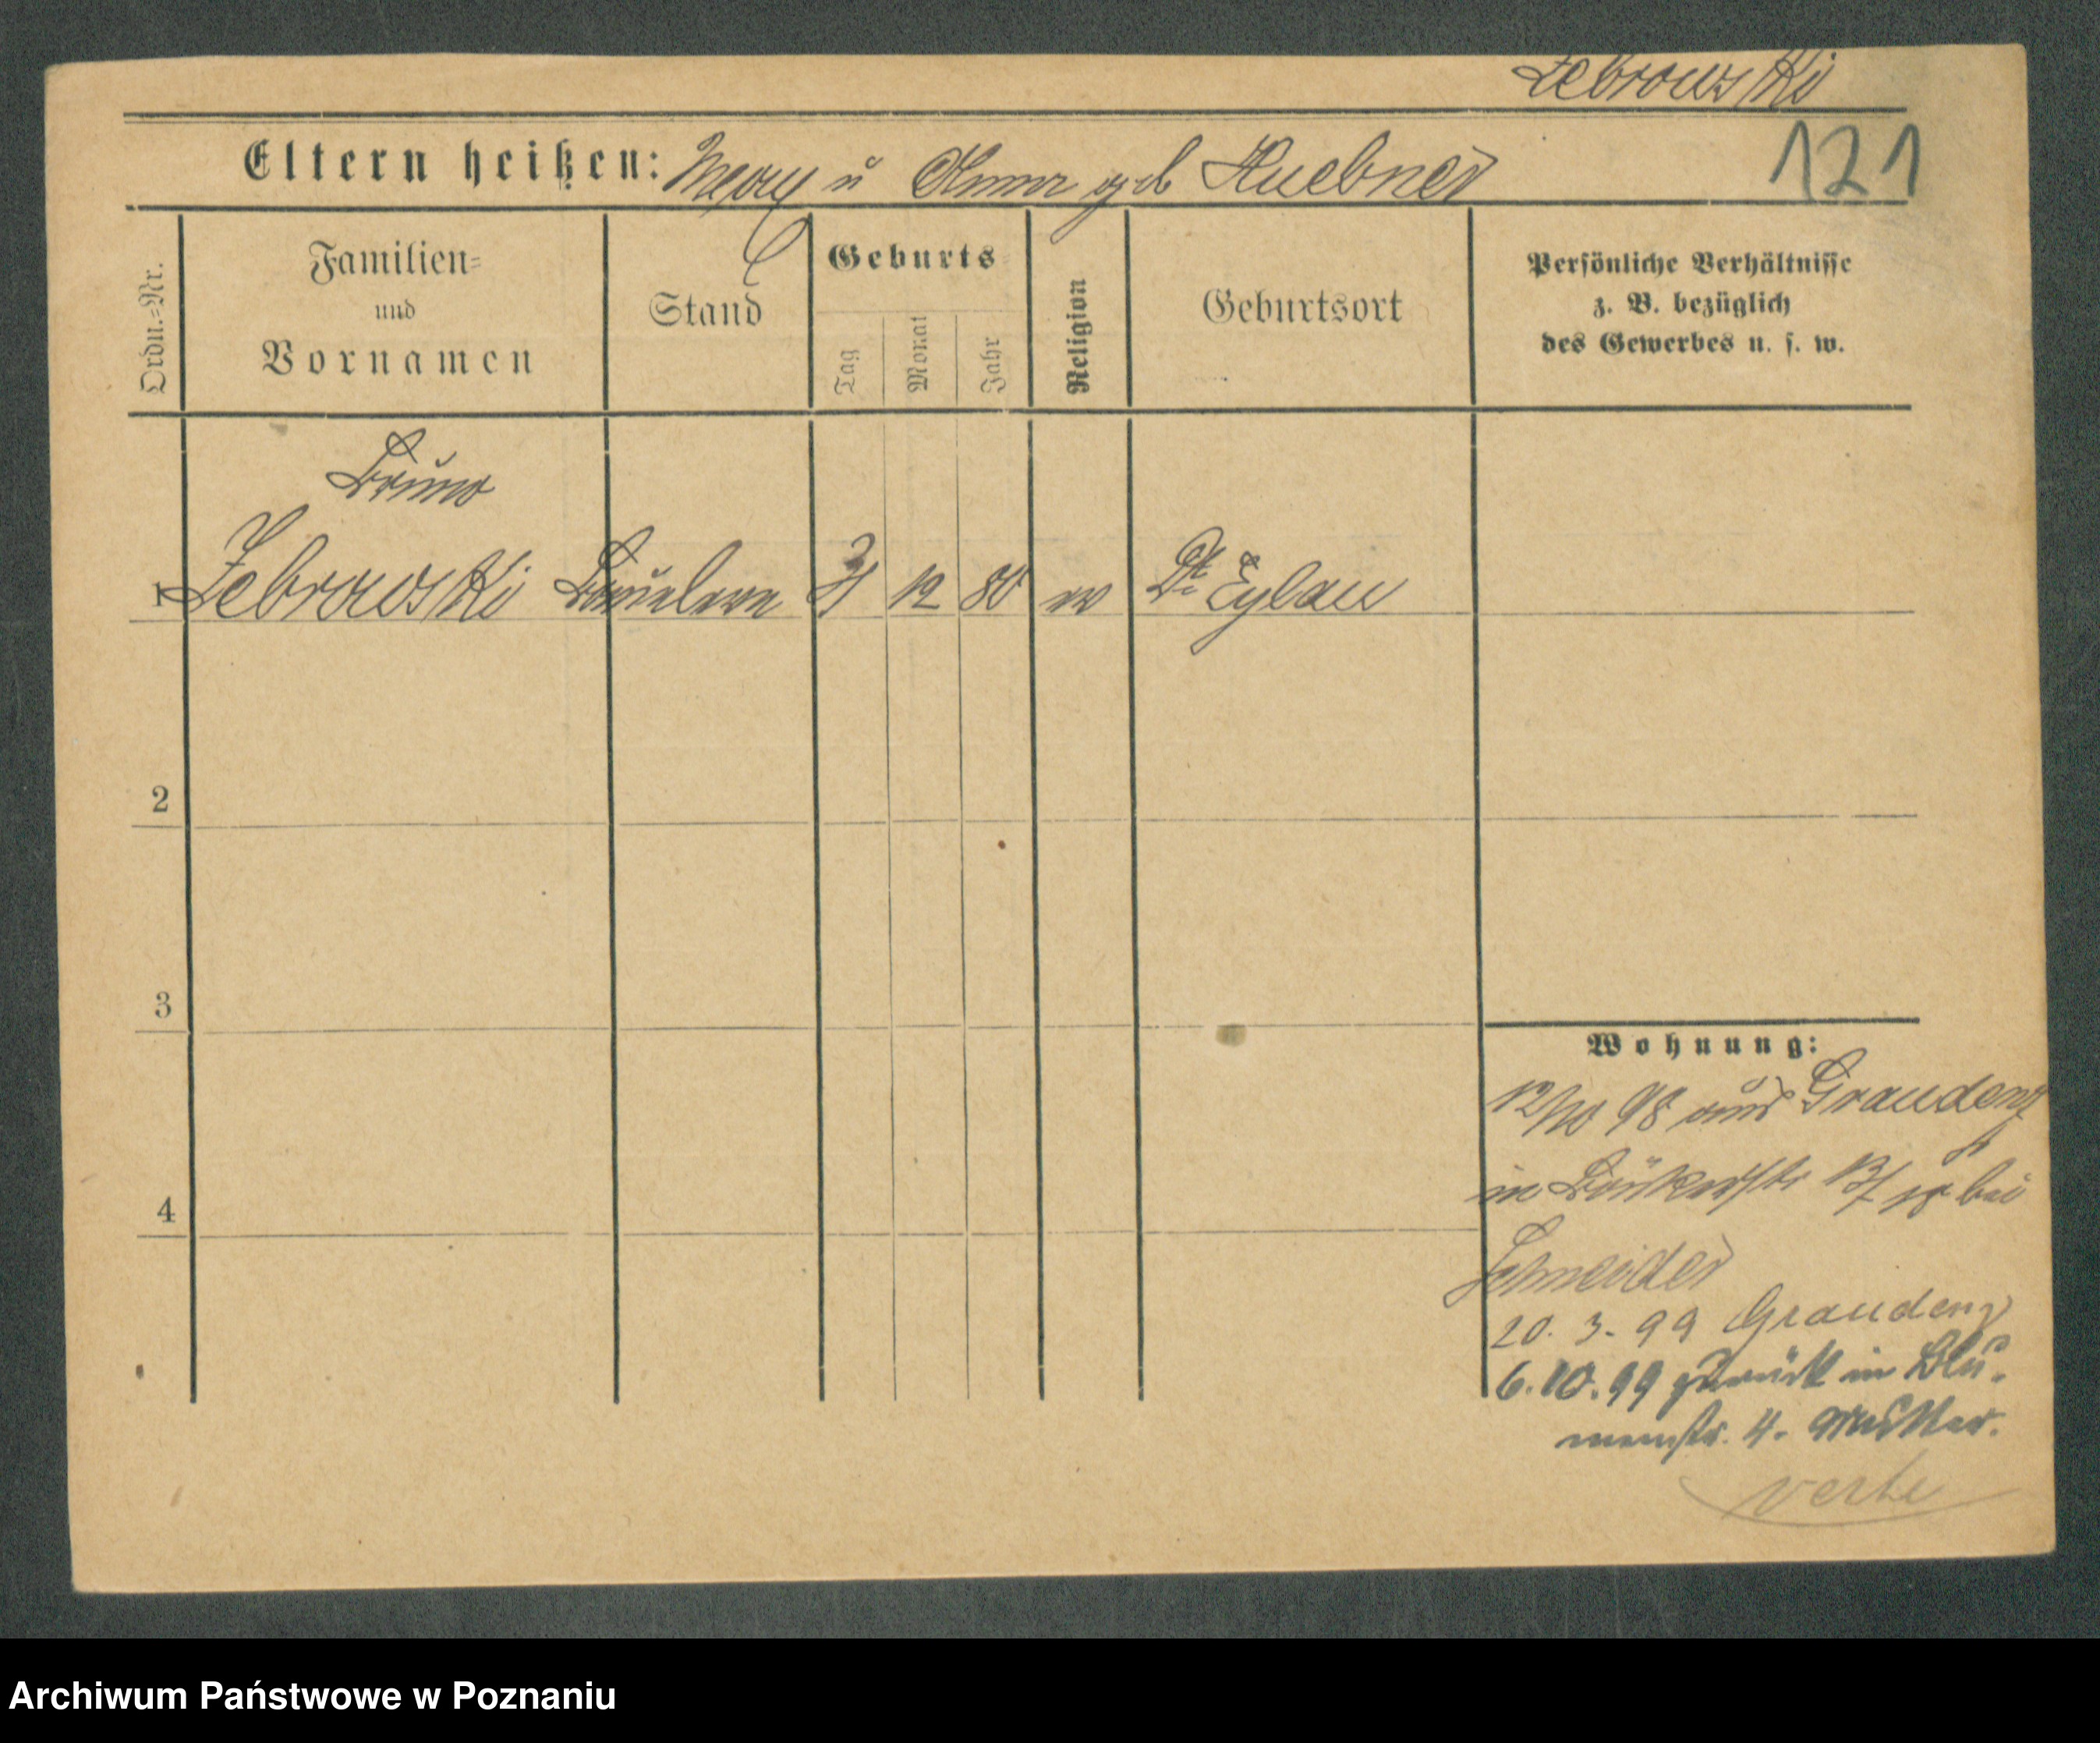 Zebrowski
121
Eltern heißen: Max u Anna geb Huebner
Ordn.=Nr.
Familien=
und
Vornamen
Stand
Geburts=
Tag
Monat
Jahr
Religion
Geburtsort
Persönliche Verhältnisse
z. B. bezüglich
des Gewerbes u. s. w.
Bruno
1 Zebrowski 12 80 ev Dt. Eylau
2
3
4
Wohnung:
12/10 98 aus Graudenz
in Bäckerstr 13/ bei
Schneider
20. 3. 99 Graudenz
6. 10. 99 zurück in Blu-
menstr. 4.
verte
Archiwum Państwowe w Poznaniu